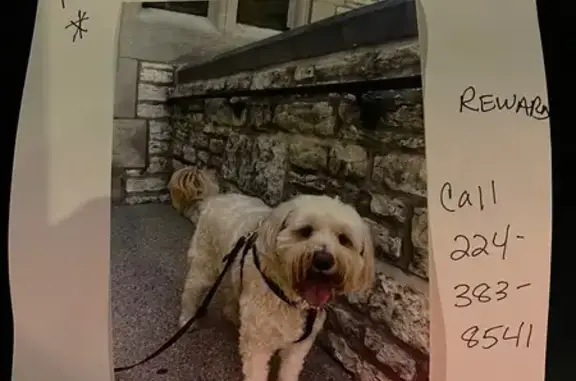 *
REWARD
Call
224-
383-
8541